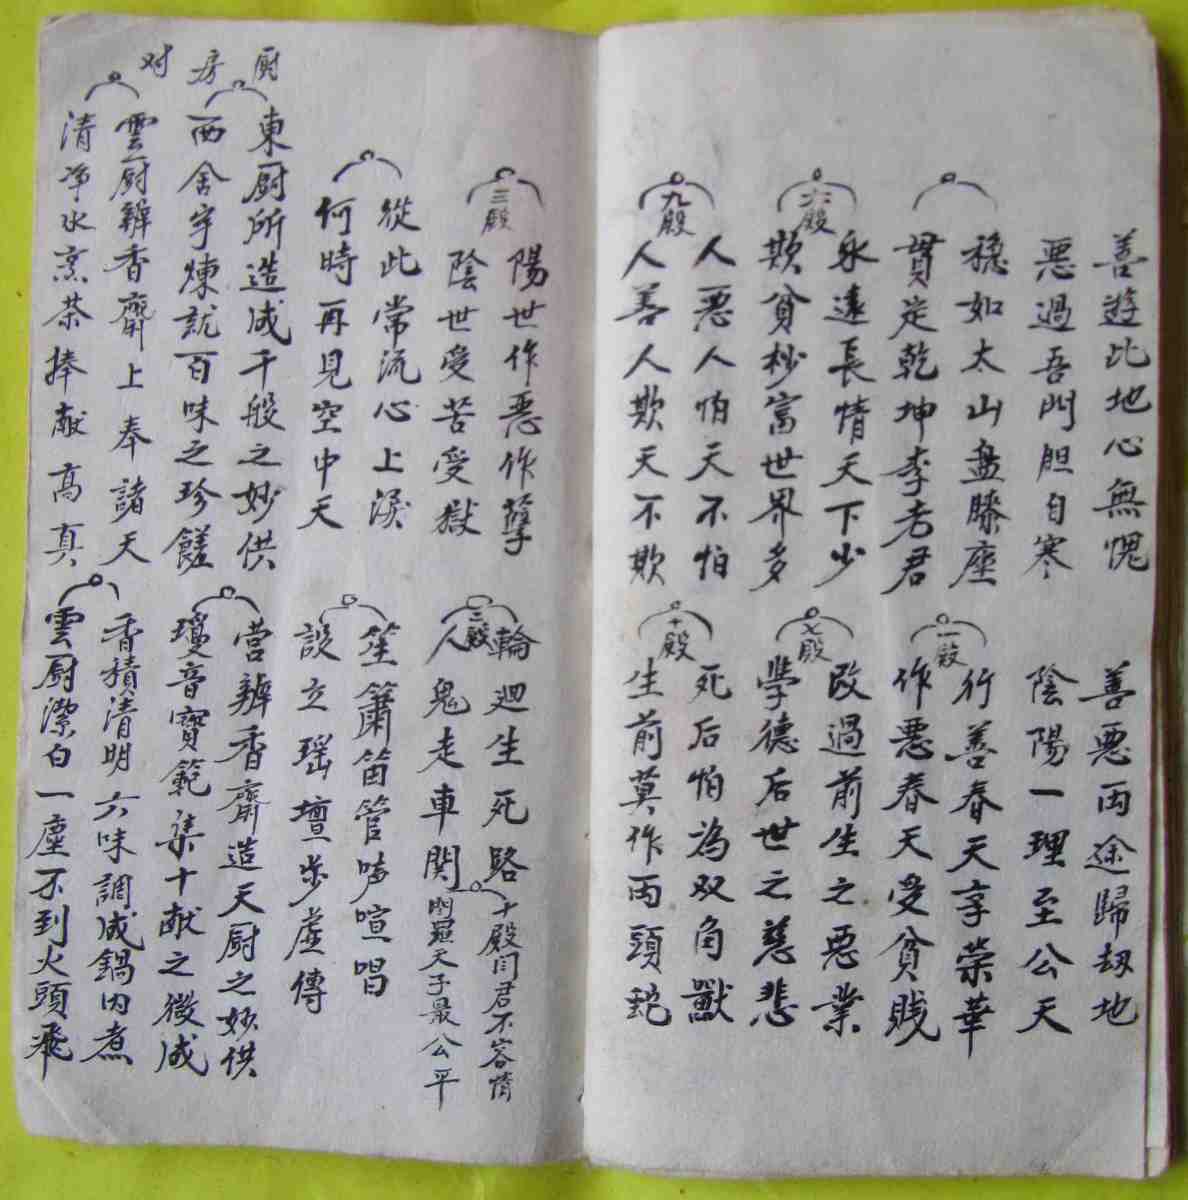 善遊此地心無愧
惡過吾門胆自寒
穩如太山盘膝座
貫定乾坤李老君
六殿
永遠長情天下少
欺貧抄富世界多
九殿
人惡人怕天不怕
人善人欺天不欺
善惡両途歸劫地
陰陽一理至公天
一殿
行善春天享荣華
作惡春天受貧賎
七殿
改過前生之惡業
學德后世之慈悲
十殿
死后怕為双角獸
生前莫作両頭蛇
三殿
陽世作惡作孽
陰世受苦受獄
從此常流心上淚
何時再見空中天
厨房对
東厨所造成千般之妙供
西舍字煉就百味之珍饈
雲厨辦香齋上奉諸天
清净水烹茶捧献高真
三殿
輪廻生死路
人鬼走車関
十殿闫君不容情
閻羅天子最公平
笙簫笛管嘹喧唱
說立瑶壇步虚傳
营辦香齋造天厨之妙供
瓊音寶範集十献之微成
香積清明六味調成鍋内煮
雲厨潔白一塵不到火頭飛